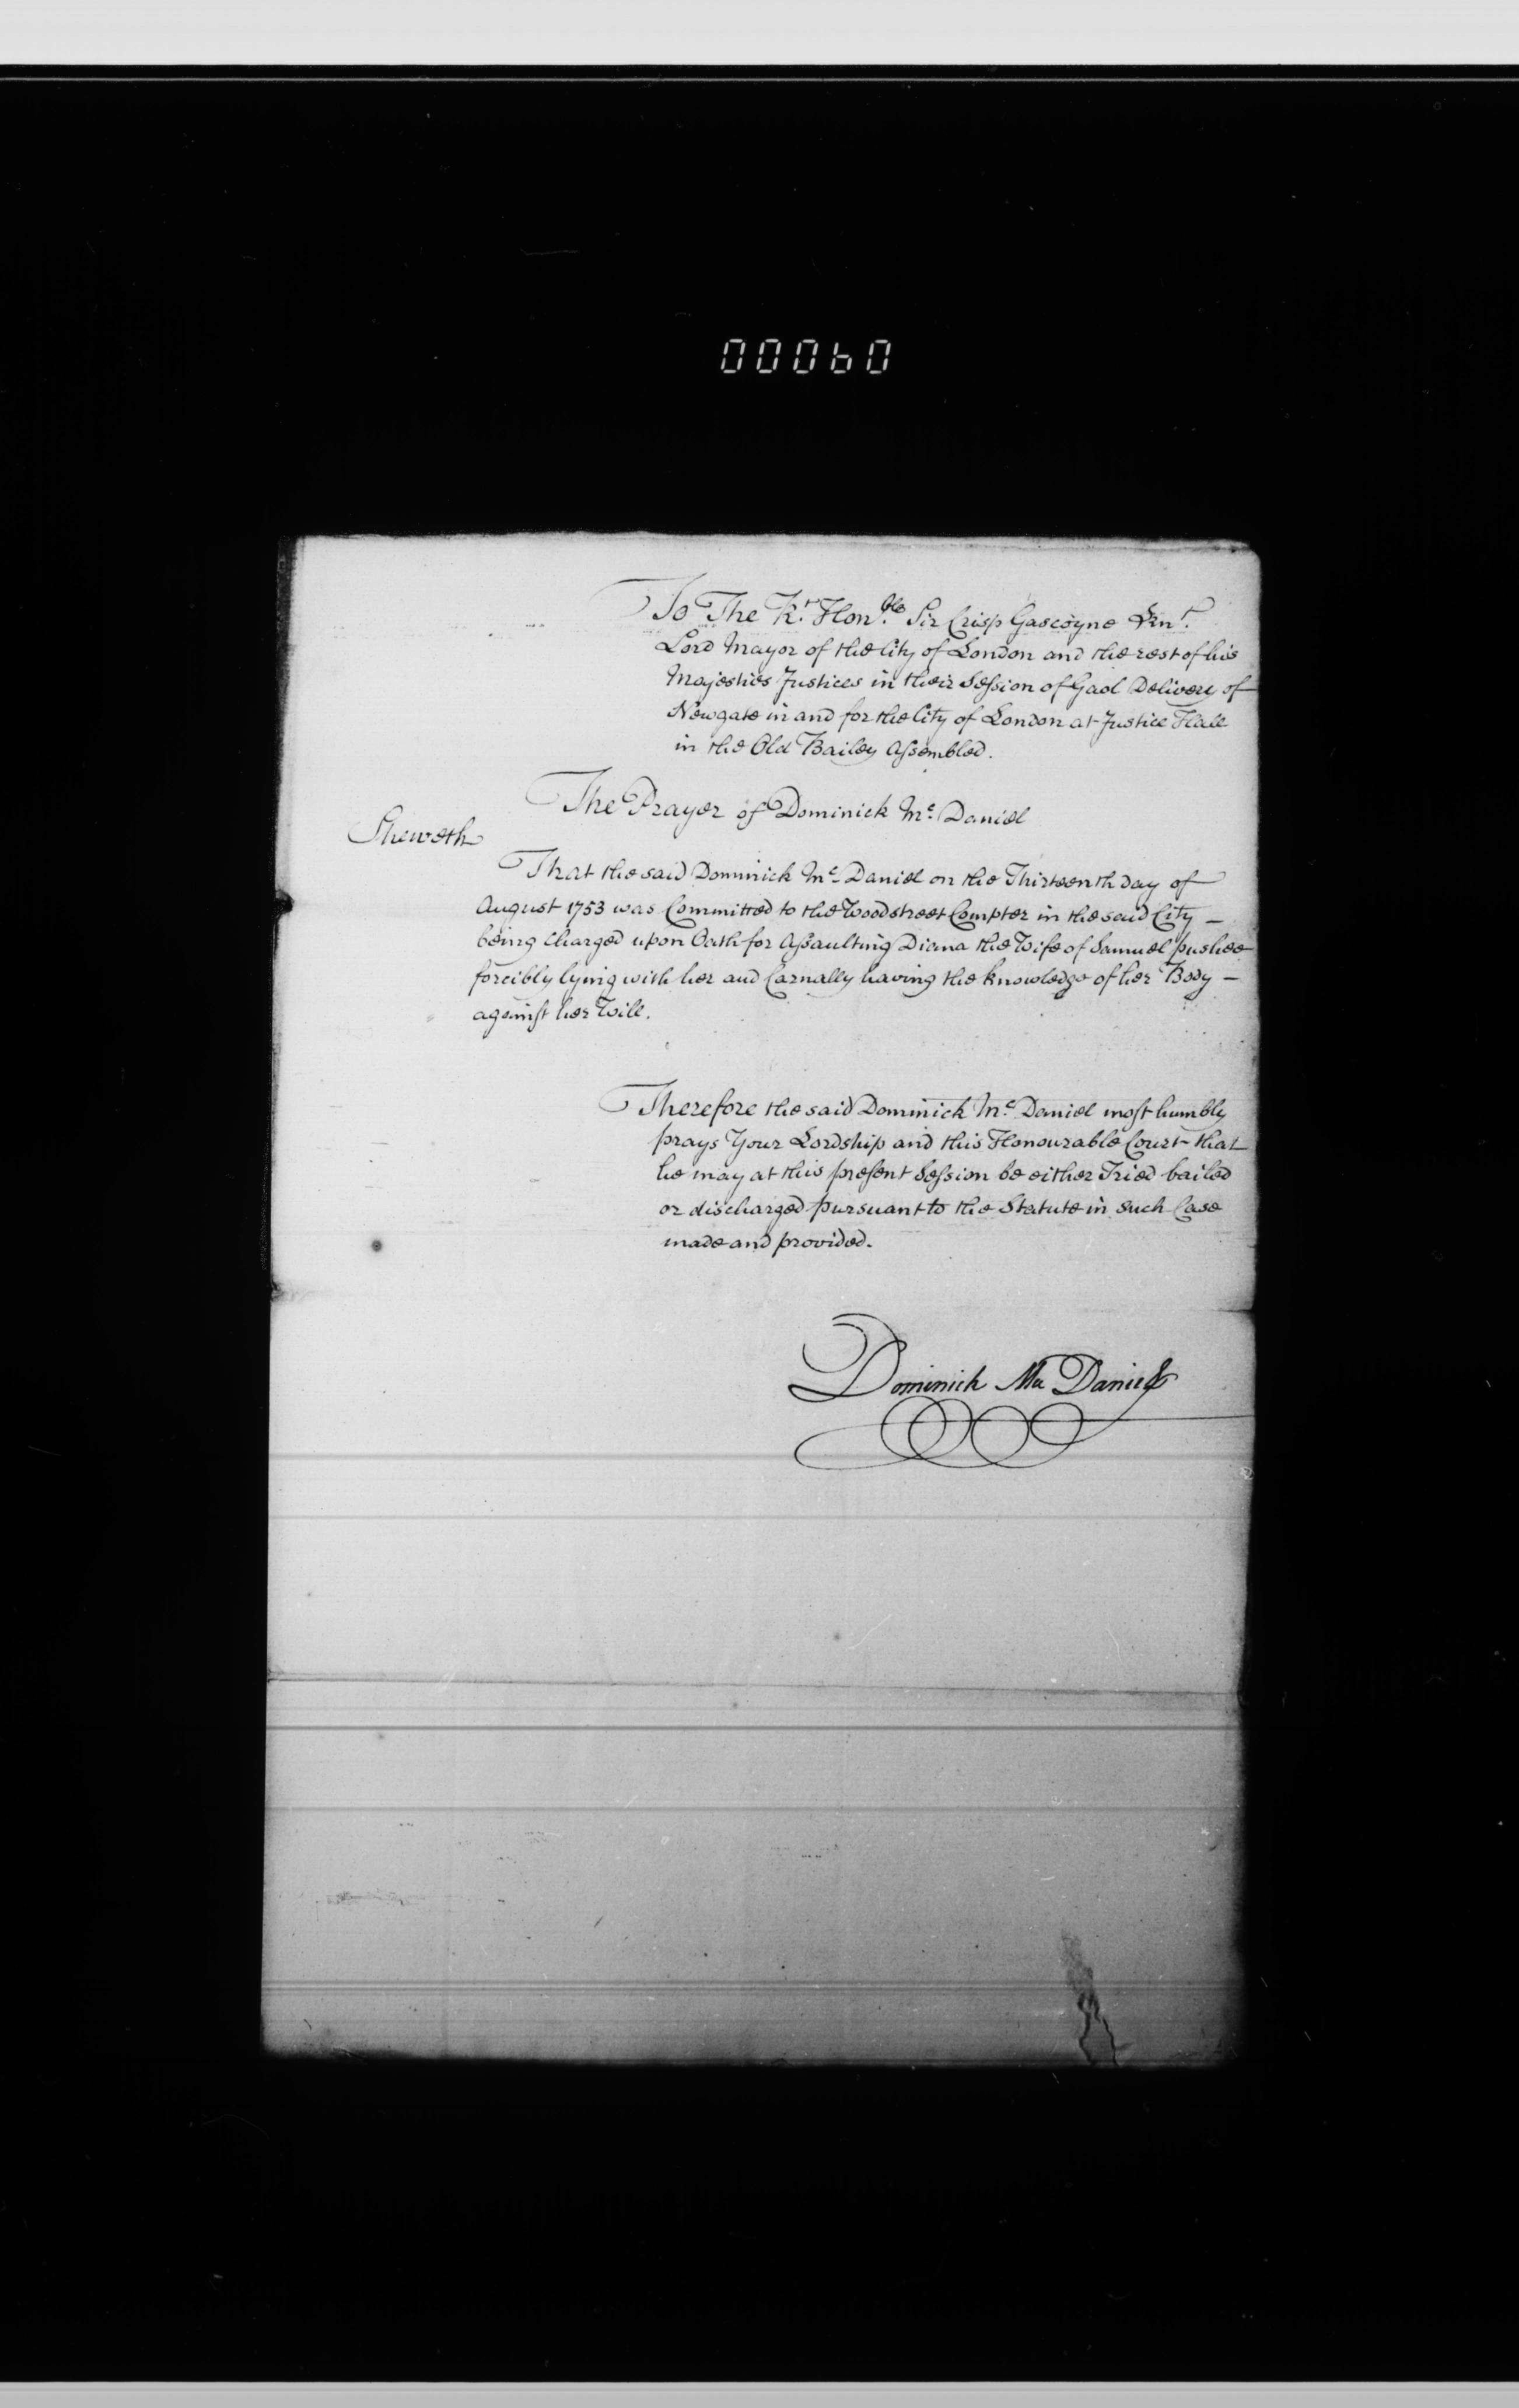 00060
To The Rt. Honble. Sir Crisp Gascoyne Knt.
Lord Mayor of the City of London and the rest of his
Majesties Justices in their Session of Gaol Delivery of
Newgate in and for the City of London at Justice Hall
in the Old Bailey Assembled.
The Prayer of Dominick Mc. Daniel
Sheweth
That the said Dominick Mc. Daniel on the Thirteenth day of
August 1753 was Committed to the Woodstreet Compter in the said City -
being Charged upon Oath for Assaulting Diana the Wife of Samuel pushee
forcibly lying with her and Carnally having the knowledge of her Body -
against her Will.
Therefore the said Dominick Mc. Daniel most humbly
prays Your Lordship and this Honourable Court that
he may at this present Session be either Tried bailed
or discharged pursuant to the Statute in such Case
made and provided.
Dominick Mc Daniel